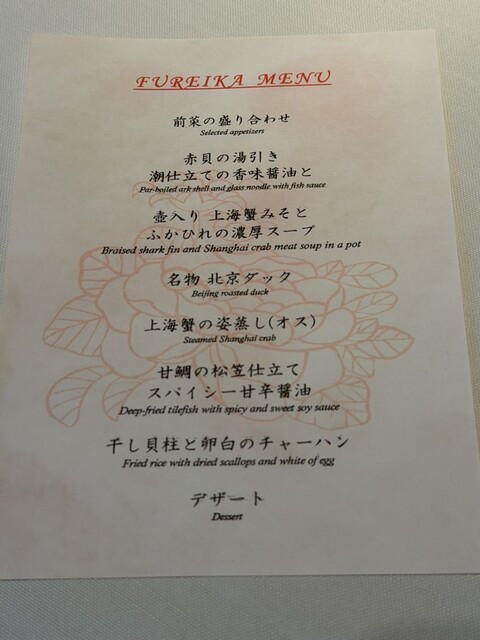 FUREIKA MENU
前菜の盛り合わせ
Selected appetizers
赤貝の湯引き
潮仕立ての香味醤油と
Par-boiled ark shell and glass noodle with fish sauce
壺入り 上海蟹みそと
ふかひれの濃厚スープ
Braised shark fin and Shanghai crab meat soup in a pot
名物 北京ダック
Beijing roasted duck
上海蟹の姿蒸し(オス)
Steamed Shanghai crab
甘鯛の松笠仕立て
スパイシー甘辛醤油
Deep-fried tilefish with spicy and sweet soy sauce
干し貝柱と卵白のチャーハン
Fried rice with dried scallops and white of egg
デザート
Dessert